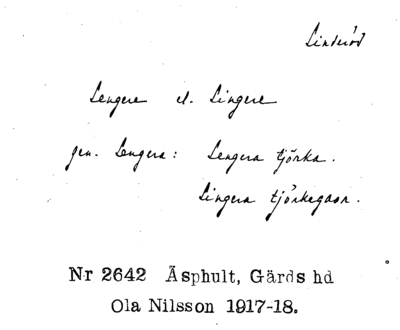 Linderöd
Lengere el. Lingere
gen. Lengera: Lengera tjörka.
Lingera tjörkegaon.
Nr 2642 Äsphult, Gärds hd
Ola Nilsson 1917-18.